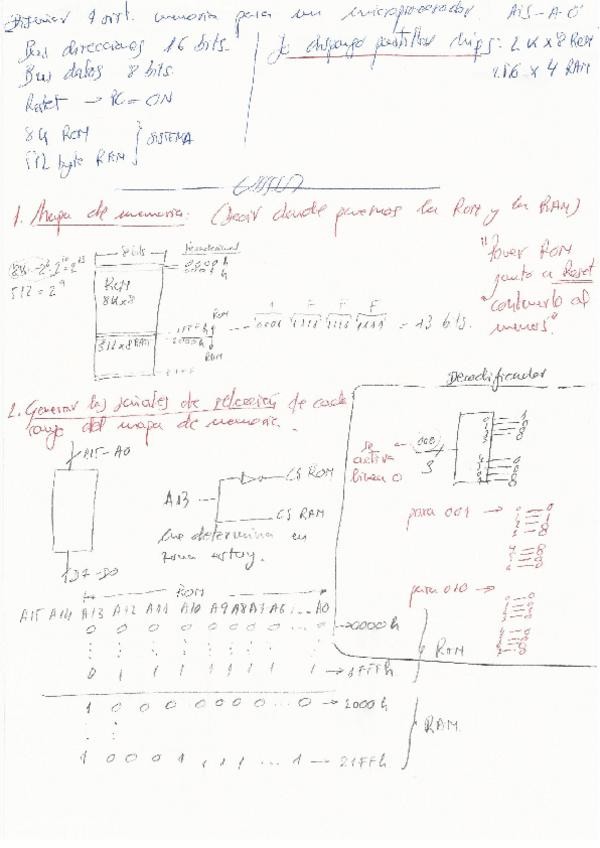 Diseñar 1 sist. memoria para un microprocesador A15-A0
Bus direcciones 16 bits.
Bus datos 8 bits.
Reset → PC = 0N
8K ROM
512 byte RAM } SISTEMA
Yo dispongo pastillas chips: 2K x 8 ROM
256 x 4 RAM
1. Mapa de memoria: (Decir donde ponemos la ROM y la RAM)
8 bits
Hexadecimal
0000h
8K = 2³·2¹⁰ = 2¹³
512 = 2⁹
ROM
8K x 8
512 x 8 RAM
1FFFh
2000h
ROM
RAM
1 F F F
0001 1111 1111 1111 = 13 bits.
"Poner ROM
junto a Reset
contenerlo al
menos".
2. Generar las señales de selección de cada
rango del mapa de memoria.
A15-A0
D7-D0
A13
CS ROM
CS RAM
que determina en
zona estoy.
Decodificador
se
activa
linea 0
000
3
para 001 →
para 010 →
ROM
A15 A14 A13 A12 A11 A10 A9 A8 A7 A6 ... A0
0 0 0 0 0 0 0 0 ... 0 → 0000h
0 1 1 1 1 1 1 1 1 → 1FFFh
} ROM
1 0 0 0 0 0 0 0 ... 0 → 2000h
1 0 0 0 1 1 1 1 ... 1 → 21FFh
} RAM